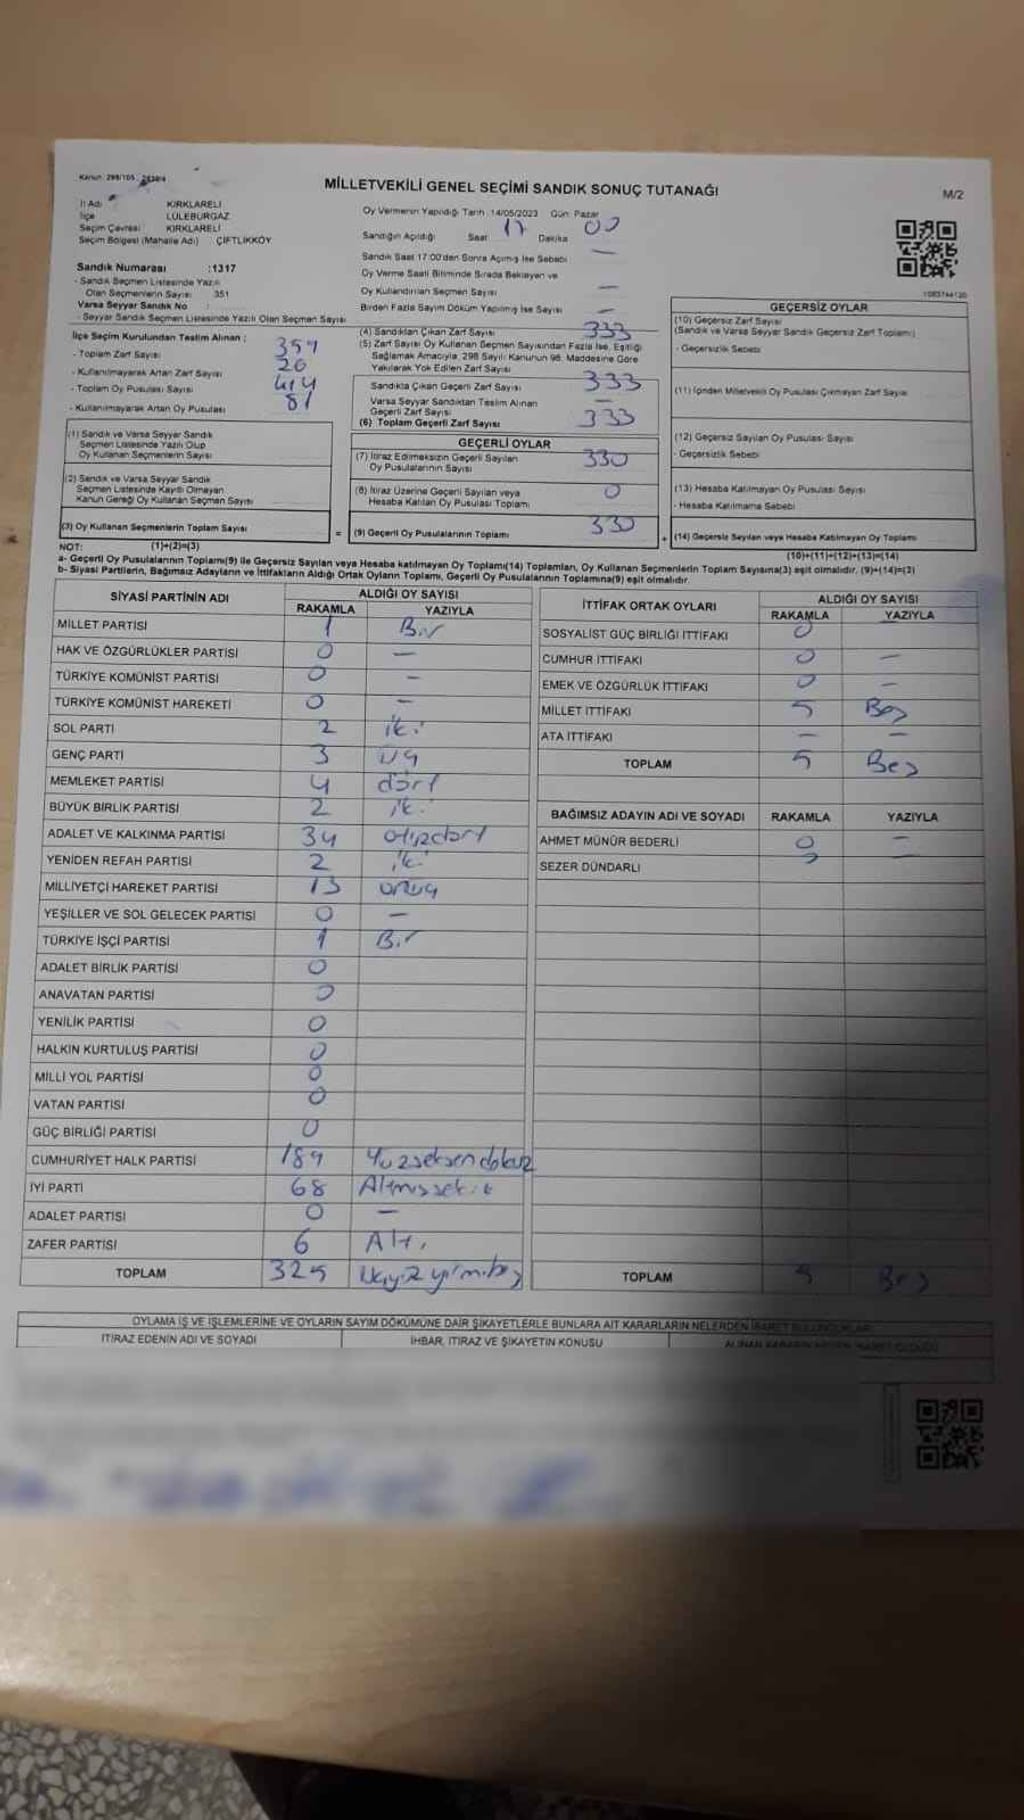 Kanun: 298/105
MİLLETVEKİLİ GENEL SEÇİMİ SANDIK SONUÇ TUTANAĞI
M/2
İl Adı KIRKLARELİ
İlçe LÜLEBURGAZ
Seçim Çevresi KIRKLARELİ
Seçim Bölgesi (Mahalle Adı) ÇİFTLİKKÖY
Oy Vermenin Yapıldığı Tarih :14/05/2023 Gün: Pazar
Sandığın Açıldığı Saat 17 Dakika 00
Sandık Saat 17:00'den Sonra Açılmış İse Sebebi —
Oy Verme Saati Bitiminde Sırada Bekleyen ve
Oy Kullandırılan Seçmen Sayısı —
Birden Fazla Sayım Döküm Yapılmış İse Sayısı —
Sandık Numarası :1317
- Sandık Seçmen Listesinde Yazılı
Olan Seçmenlerin Sayısı 351
Varsa Seyyar Sandık No :
- Seyyar Sandık Seçmen Listesinde Yazılı Olan Seçmen Sayısı
İlçe Seçim Kurulundan Teslim Alınan :
- Toplam Zarf Sayısı 359
- Kullanılmayarak Artan Zarf Sayısı 26
- Toplam Oy Pusulası Sayısı 414
- Kullanılmayarak Artan Oy Pusulası 81
(1) Sandık ve Varsa Seyyar Sandık
Seçmen Listesinde Yazılı Olup
Oy Kullanan Seçmenlerin Sayısı
(2) Sandık ve Varsa Seyyar Sandık
Seçmen Listesinde Kayıtlı Olmayan
Kanun Gereği Oy Kullanan Seçmen Sayısı
(3) Oy Kullanan Seçmenlerin Toplam Sayısı
(1)+(2)=(3)
(4) Sandıktan Çıkan Zarf Sayısı 333
(5) Zarf Sayısı Oy Kullanan Seçmen Sayısından Fazla İse, Eşitliği
Sağlamak Amacıyla, 298 Sayılı Kanunun 98. Maddesine Göre
Yakılarak Yok Edilen Zarf Sayısı
Sandıkta Çıkan Geçerli Zarf Sayısı 333
Varsa Seyyar Sandıktan Teslim Alınan
Geçerli Zarf Sayısı —
(6) Toplam Geçerli Zarf Sayısı 333
GEÇERLİ OYLAR
(7) İtiraz Edilmeksizin Geçerli Sayılan
Oy Pusulalarının Sayısı 330
(8) İtiraz Üzerine Geçerli Sayılan veya
Hesaba Katılan Oy Pusulası Toplamı 0
= (9) Geçerli Oy Pusulalarının Toplamı 330
GEÇERSİZ OYLAR
(10) Geçersiz Zarf Sayısı
(Sandık ve Varsa Seyyar Sandık Geçersiz Zarf Toplamı)
- Geçersizlik Sebebi
(11) İçinden Milletvekili Oy Pusulası Çıkmayan Zarf Sayısı
(12) Geçersiz Sayılan Oy Pusulası Sayısı
- Geçersizlik Sebebi
(13) Hesaba Katılmayan Oy Pusulası Sayısı
- Hesaba Katılmama Sebebi
+ (14) Geçersiz Sayılan veya Hesaba Katılmayan Oy Toplamı
(10)+(11)+(12)+(13)=(14)
NOT:
a- Geçerli Oy Pusulalarının Toplamı(9) ile Geçersiz Sayılan veya Hesaba katılmayan Oy Toplamı(14) Toplamları, Oy Kullanan Seçmenlerin Toplam Sayısına(3) eşit olmalıdır. (9)+(14)=(3)
b- Siyasi Partilerin, Bağımsız Adayların ve İttifakların Aldığı Ortak Oyların Toplamı, Geçerli Oy Pusulalarının Toplamına(9) eşit olmalıdır.
SİYASİ PARTİNİN ADI ALDIĞI OY SAYISI
RAKAMLA YAZIYLA
MİLLET PARTİSİ 1 Bir
HAK VE ÖZGÜRLÜKLER PARTİSİ 0 —
TÜRKİYE KOMÜNİST PARTİSİ 0 —
TÜRKİYE KOMÜNİST HAREKETİ 0 —
SOL PARTİ 2 iki
GENÇ PARTİ 3 üç
MEMLEKET PARTİSİ 4 dört
BÜYÜK BİRLİK PARTİSİ 2 iki
ADALET VE KALKINMA PARTİSİ 34 otuzdört
YENİDEN REFAH PARTİSİ 2 iki
MİLLİYETÇİ HAREKET PARTİSİ 13 onüç
YEŞİLLER VE SOL GELECEK PARTİSİ 0 —
TÜRKİYE İŞÇİ PARTİSİ 1 Bir
ADALET BİRLİK PARTİSİ 0
ANAVATAN PARTİSİ 0
YENİLİK PARTİSİ 0
HALKIN KURTULUŞ PARTİSİ 0
MİLLİ YOL PARTİSİ 0
VATAN PARTİSİ 0
GÜÇ BİRLİĞİ PARTİSİ 0
CUMHURİYET HALK PARTİSİ 189 Yüzseksendokuz
İYİ PARTİ 68 Altmışsekiz
ADALET PARTİSİ 0 —
ZAFER PARTİSİ 6 Altı
TOPLAM 325 Üçyüzyirmibeş
İTTİFAK ORTAK OYLARI ALDIĞI OY SAYISI
RAKAMLA YAZIYLA
SOSYALİST GÜÇ BİRLİĞİ İTTİFAKI 0
CUMHUR İTTİFAKI 0 —
EMEK VE ÖZGÜRLÜK İTTİFAKI 0 —
MİLLET İTTİFAKI 5 Beş
ATA İTTİFAKI — —
TOPLAM 5 Beş
BAĞIMSIZ ADAYIN ADI VE SOYADI RAKAMLA YAZIYLA
AHMET MÜNÜR BEDERLİ 0 —
SEZER DÜNDARLI 0 —
TOPLAM 5 Beş
OYLAMA İŞ VE İŞLEMLERİNE VE OYLARIN SAYIM DÖKÜMÜNE DAİR ŞİKAYETLERLE BUNLARA AİT KARARLARIN NELERDEN İBARET BULUNDUKLARI
İTİRAZ EDENİN ADI VE SOYADI İHBAR, İTİRAZ VE ŞİKAYETİN KONUSU